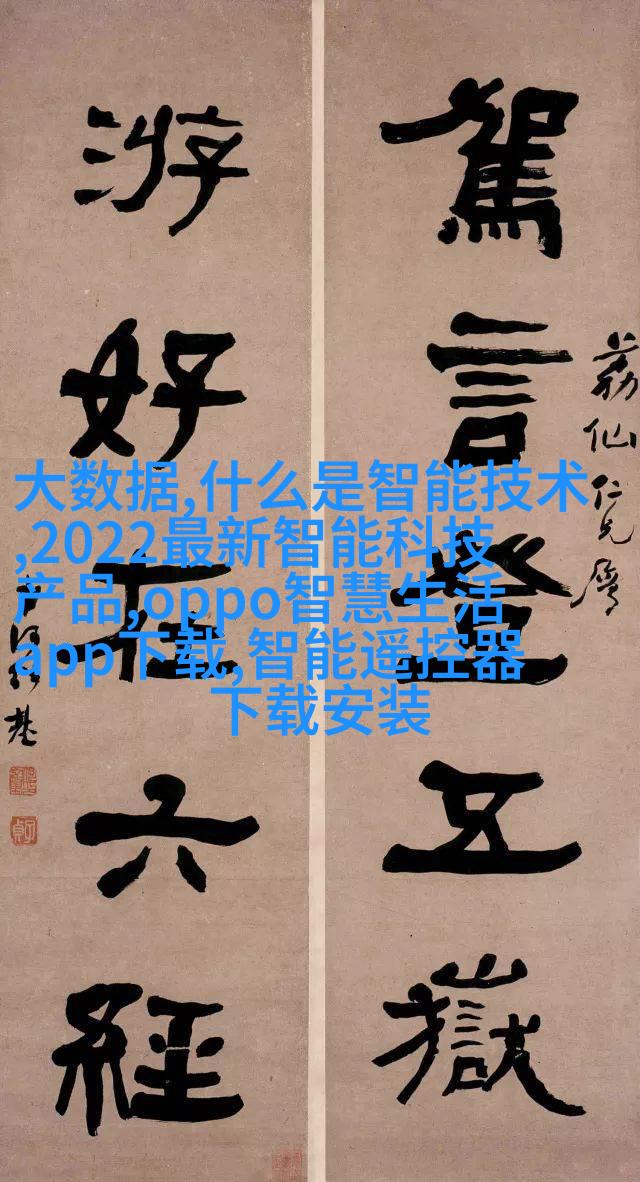 荔仙仁兄屬
駕言登五嶽
游好在六經
何紹基
子貞
大数据,什么是智能技术
,2022最新智能科技
产品,oppo智慧生活
app下载,智能遥控器
下载安装